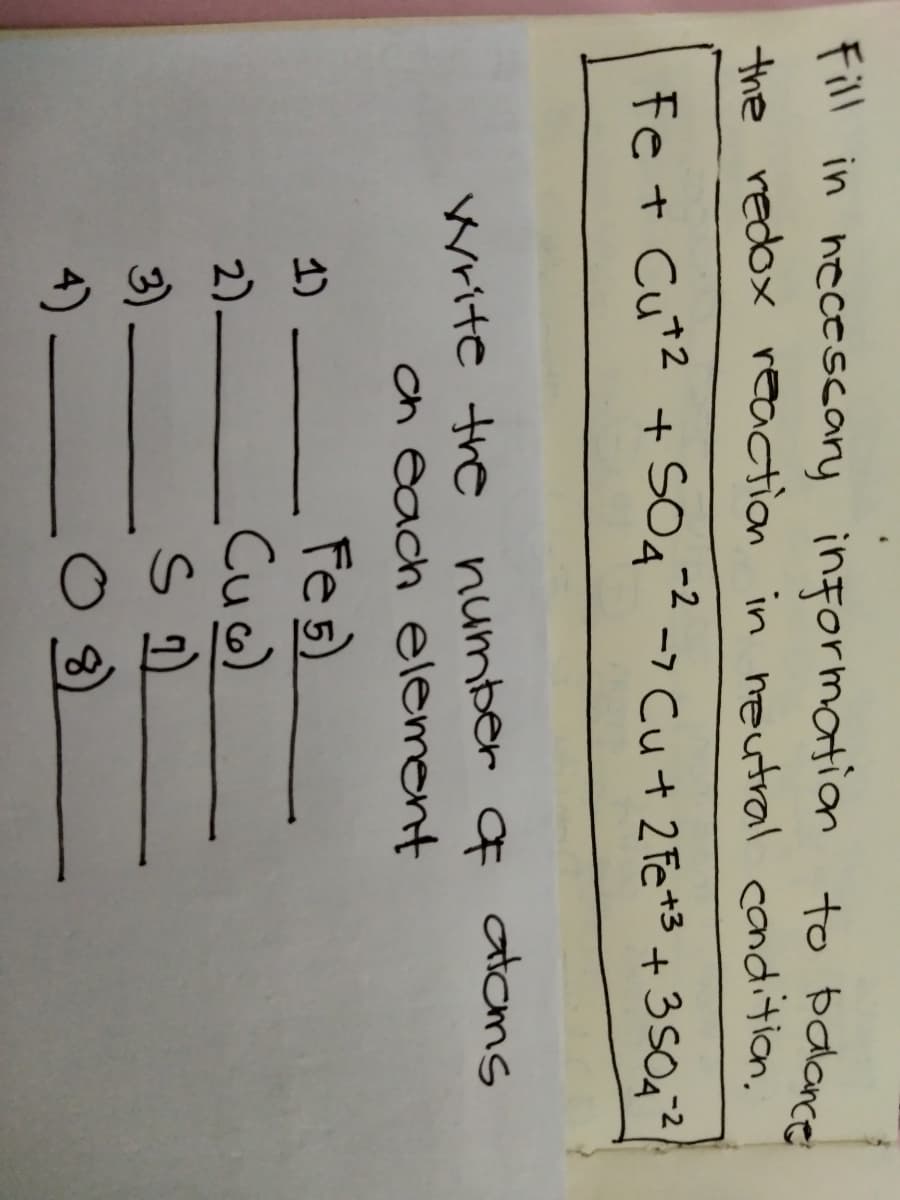 Fill in necessary information to balance
the redox reaction in neutral condition.
Fe + Cu⁺² + SO₄⁻² -> Cu + 2Fe⁺³ + 3SO₄⁻²
Write the number of atoms
on each element
1) ______ Fe 5) ______
2) ______ Cu 6) ______
3) ______ S 7) ______
4) ______ O 8) ______